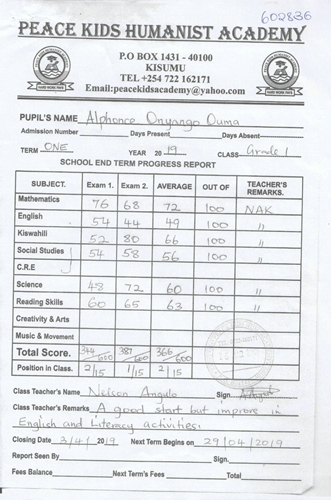 602836
PEACE KIDS HUMANIST ACADEMY
P.O BOX 1431 - 40100
KISUMU
TEL +254 722 162171
Email:peacekidsacademy@yahoo.com
HARD WORK PAYS HARD WORK PAYS
PUPIL'S NAME Alphonce Onyango Ouma
Admission Number Days Present Days Absent
TERM ONE YEAR 2019 CLASS Grade 1
SCHOOL END TERM PROGRESS REPORT
SUBJECT. Exam 1. Exam 2. AVERAGE OUT OF TEACHER'S REMARKS.
Mathematics 76 68 72 100 NAK
English 54 44 49 100 "
Kiswahili 52 80 66 100 "
Social Studies 54 58 56 100 "
C.R.E
Science 48 72 60 100 "
Reading Skills 60 65 63 100 "
Creativity & Arts
Music & Movement
Total Score. 344/500 387/600 366/600
Position in Class. 2/15 1/15 2/15
Class Teacher's Name Nelson Angulo Sign.
Class Teacher's Remarks A good start but improve in
English and Literacy activities.
Closing Date 3/4/2019 Next Term Begins on 29/04/2019
Report Seen By Sign.
Fees Balance Next Term's Fees Total